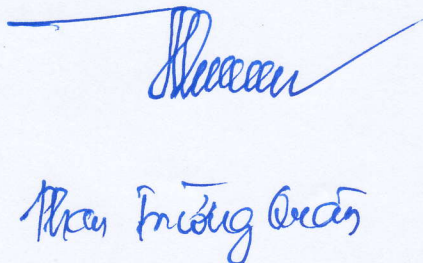 Phan Trường Quân